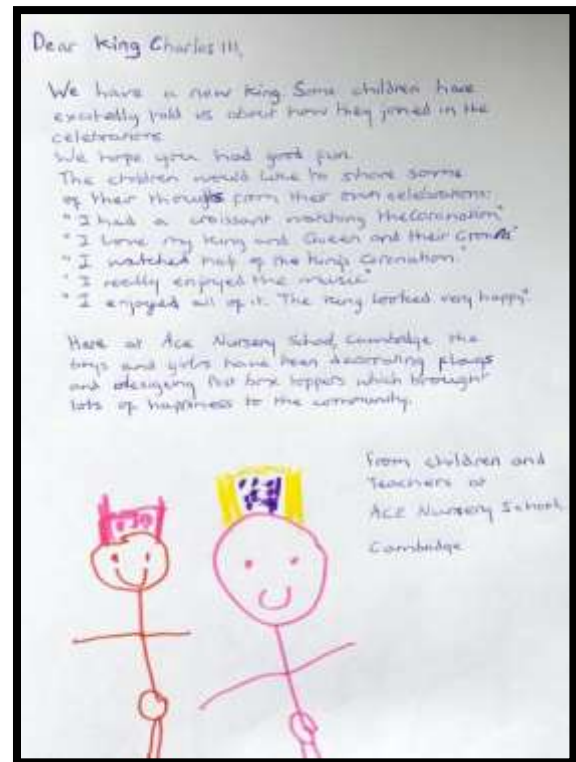 Dear King Charles III,
We have a new king Some children have
excitedly told us about how they joined in the
celebrations
We hope you had good fun.
The children would like to share some
of their thoughts from their own celebrations:
"I had a croissant watching the Coronation"
"I love my King and Queen and their Crowns"
"I watched half of the King's Coronation."
"I really enjoyed the music"
"I enjoyed all of it. The King looked very happy".
Here at Ace Nursery School, Cambridge the
boys and girls have been decorating flags
and designing Post box toppers which brought
lots of happiness to the community.
From children and
Teachers at
ACE Nursery School,
Cambridge